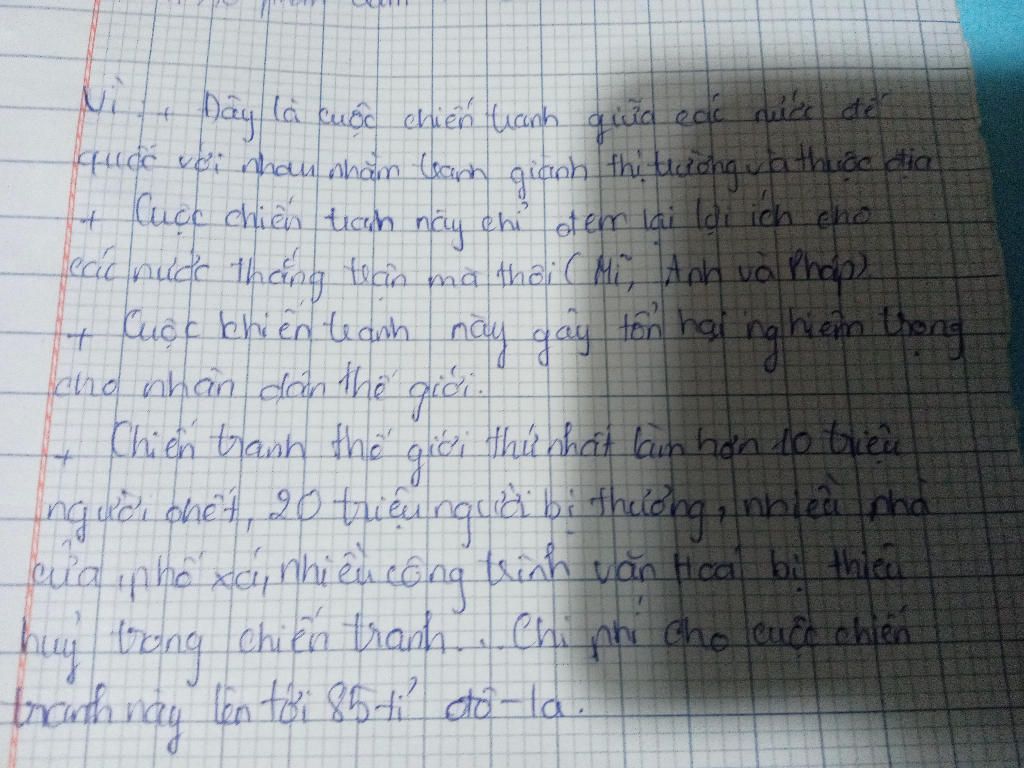 Vì: + Đây là cuộc chiến tranh giữa các nước đế
quốc với nhau nhằm tranh giành thị trường và thuộc địa
+ Cuộc chiến tranh này chỉ đem lại lợi ích cho
các nước thắng trận mà thôi (Mĩ, Anh và Pháp)
+ Cuộc chiến tranh này gây tổn hại nghiêm trọng
cho nhân dân thế giới.
+ Chiến tranh thế giới thứ nhất làm hơn 10 triệu
người chết, 20 triệu người bị thương, nhiều nhà
cửa, phố xá, nhiều công trình văn Hoá bị thiêu
huỷ trong chiến tranh... Chi phí cho cuộc chiến
tranh này lên tới 85 tỉ đô-la.